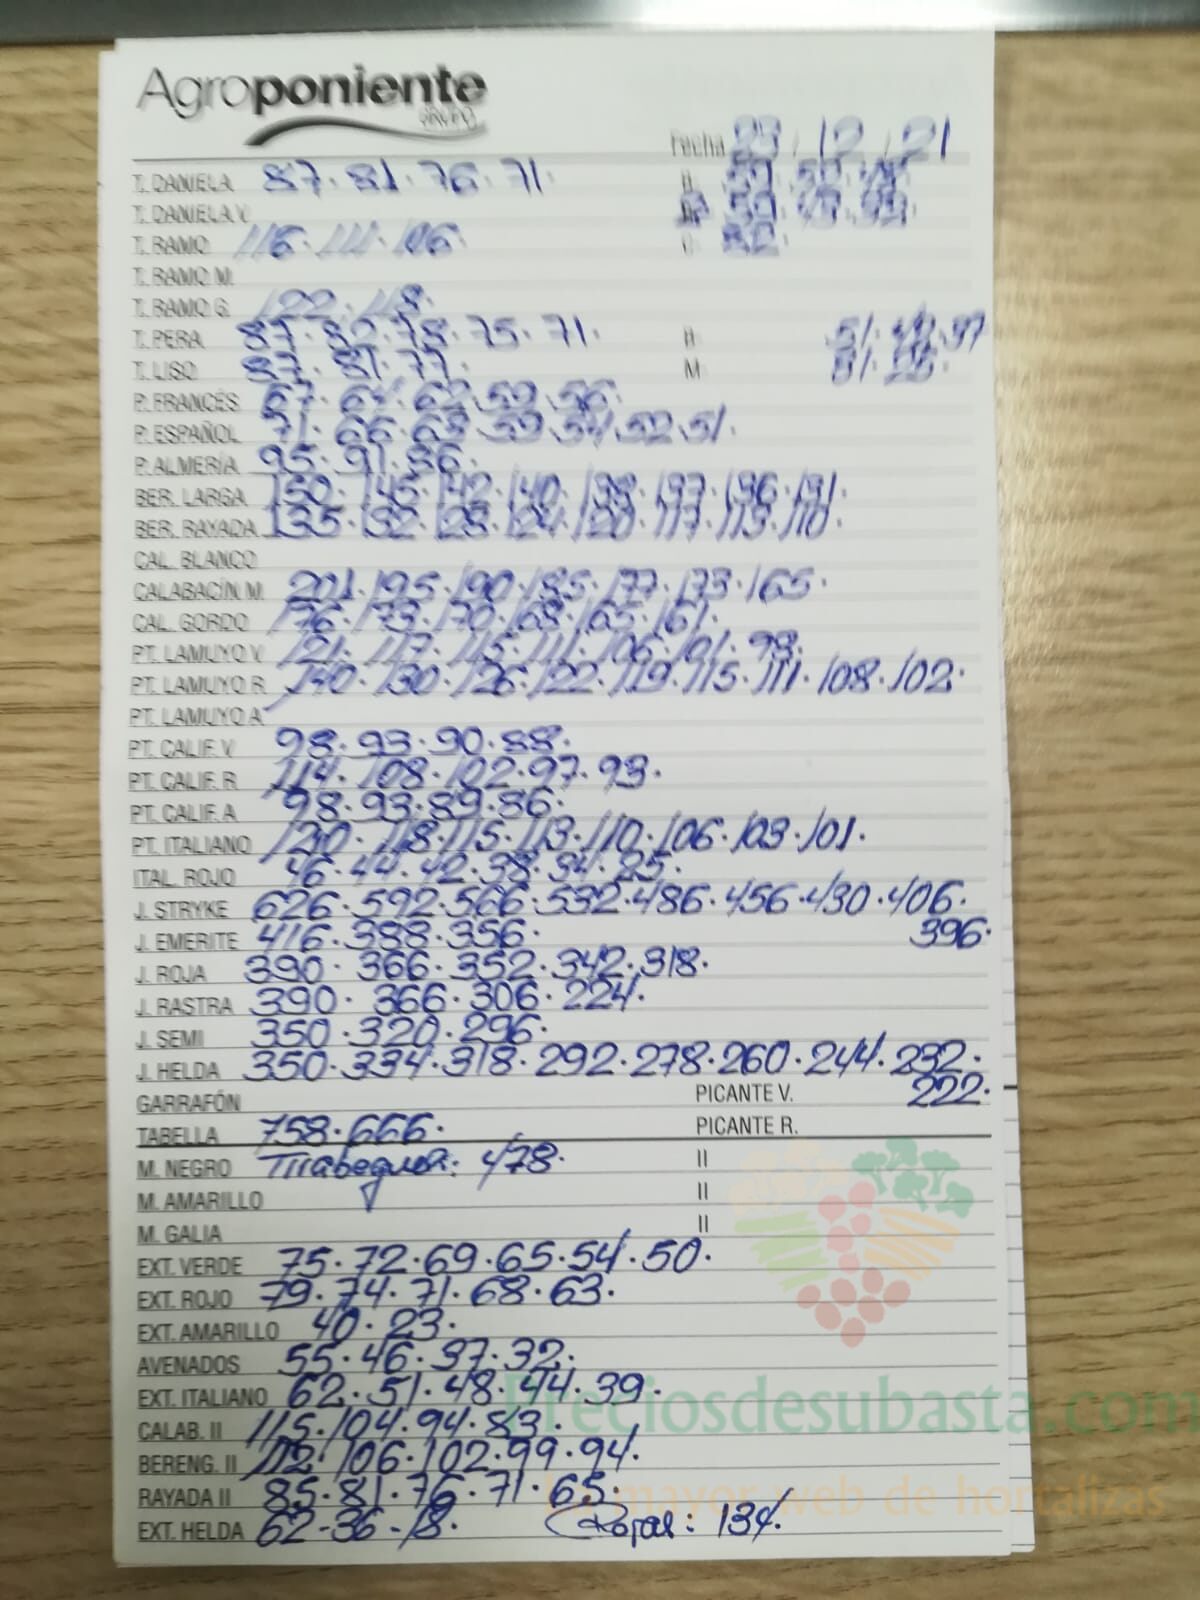 Agroponiente
GRUPO
Fecha 23 / 12 / 21
T. DANIELA 87. 81. 76. 71.
T. DANELA V.
T. RAMO 116. 111. 106.
T. RAMO M.
T. RAMO G. 122. 118.
T. PERA 87. 82. 78. 75. 71. II 51.
T. LISO 87. 81. 77. M
P. FRANCÉS 67. 64. 62. 59. 56.
P. ESPAÑOL 71. 66. 63. 59. 54. 52. 51.
P. ALMERÍA 95. 91. 86.
BER. LARGA 150. 145. 142. 140. 138. 137. 136. 131.
BER. RAYADA 135. 132. 128. 124. 120. 117. 113. 110.
CAL. BLANCO
CALABACÍN M. 201. 195. 190. 185. 177. 173. 165.
CAL. GORDO 176. 173. 170. 168. 165. 161.
PT. LAMUYO V 121. 117. 115. 111. 106. 101. 98.
PT. LAMUYO R 140. 130. 126. 122. 119. 115. 111. 108. 102.
PT. LAMUYO A
PT. CALIF. V 98. 93. 90. 88.
PT. CALIF. R 114. 108. 102. 97. 93.
PT. CALIF. A 98. 93. 89. 86.
PT. ITALIANO 120. 118. 115. 113. 110. 106. 103. 101.
ITAL. ROJO 46. 44. 42. 38. 34. 25.
J. STRYKE 626. 592. 566. 532. 486. 456. 430. 406.
396.
J. EMERITE 416. 388. 356.
J. ROJA 390. 366. 352. 342. 318.
J. RASTRA 390. 366. 306. 224.
J. SEMI 350. 320. 296.
J. HELDA 350. 334. 318. 292. 278. 260. 244. 232.
222.
GARRAFÓN PICANTE V.
TABELLA 758. 666. PICANTE R.
M. NEGRO Tirabeques: 478. II
M. AMARILLO II
M. GALIA II
EXT. VERDE 75. 72. 69. 65. 54. 50.
EXT. ROJO 79. 74. 71. 68. 63.
EXT. AMARILLO 40. 23.
AVENADOS 55. 46. 37. 32.
EXT. ITALIANO 62. 51. 48. 44. 39.
CALAB. II 115. 104. 94. 83.
BERENG. II 112. 106. 102. 99. 94.
RAYADA II 85. 81. 76. 71. 65.
EXT. HELDA 62-36-18. Rojas: 134.
Preciosdesubasta.com
La mayor web de hortalizas